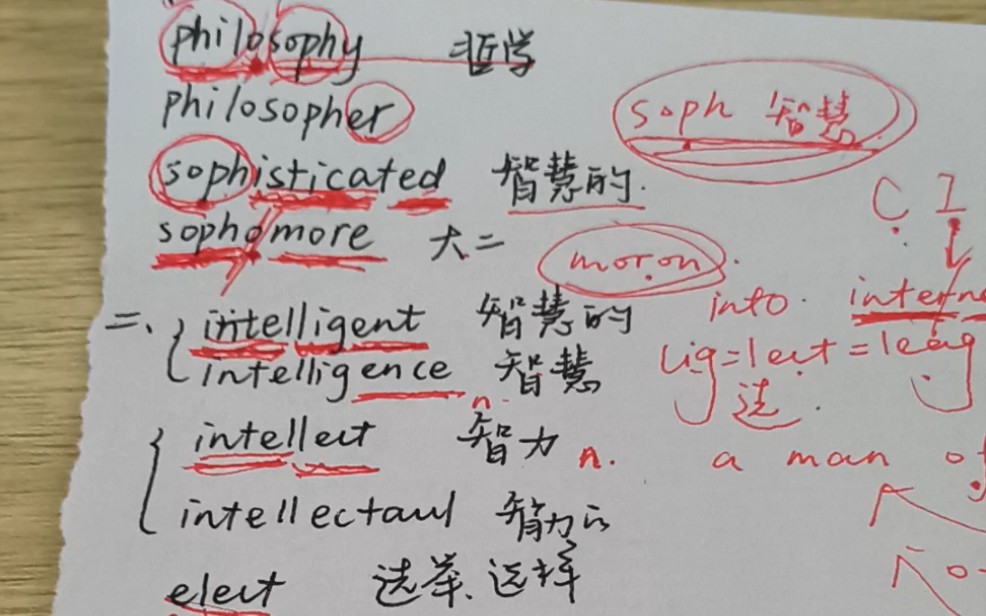 philosophy 哲学
philosopher
soph 智慧
sophisticated 智慧的.
C I
sophomore 大二
moron
into. interne
二、intelligent 智慧的
lig=lect=leag
intelligence n. 智慧
选.
intellect 智力 n. a man of
intellectaul 智力的
elect 选举.选择